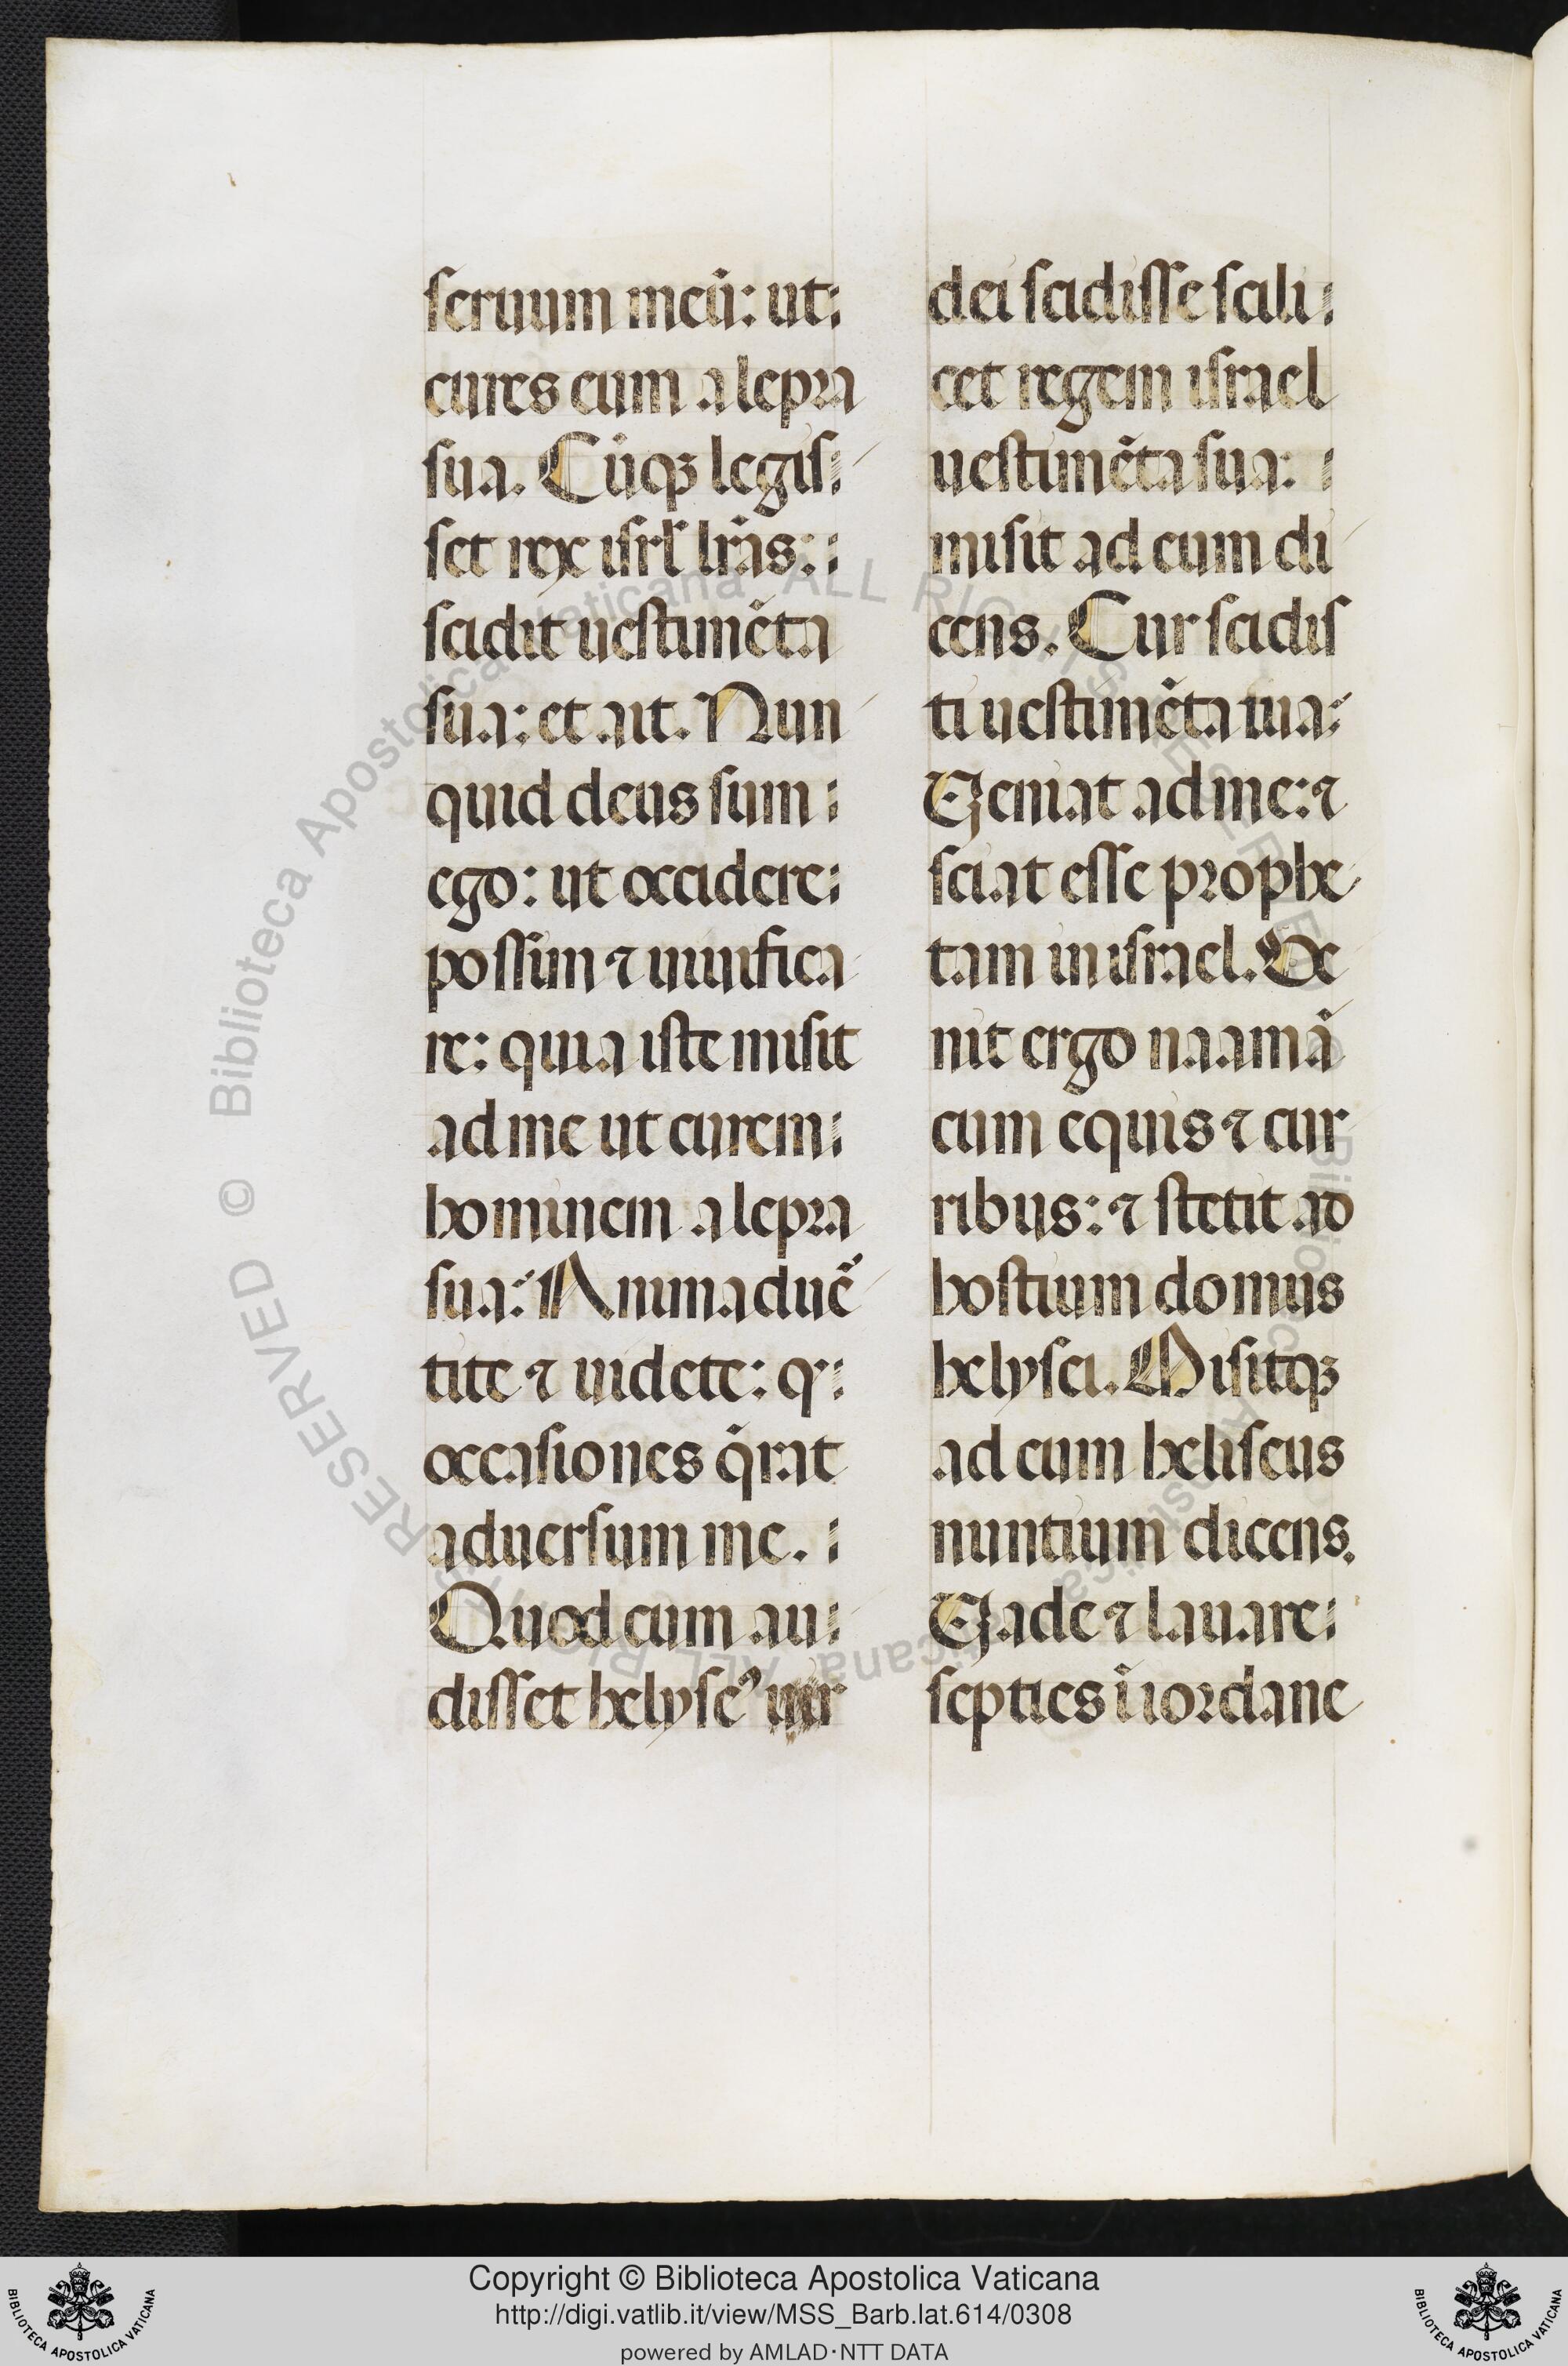 seruum meū: ut
cures eum a lepra
sua. Cūqꝫ legis
set rex isrl̄ lr̄as:
scidit uestimēta
sua: et ait. Nun
quid deus sum
ego: ut occidere
possim ⁊ uiuifica
re: quia iste misit
ad me ut curem
hominem a lepra
sua: Animaduē
tite ⁊ uidete: qꝛ
occasiones q̄rat
aduersum me.
Quod cum au
disset helyseꝰ uir
dei scidisse scili
cet regem israel
uestimēta sua:
misit ad eum di
cens. Cur scidis
ti uestimēta tua:
Veniat ad me: ⁊
sciat esse prophe
tam in israel. Ve
nit ergo naamā
cum equis ⁊ cur
ribus: ⁊ stetit ad
hostium domus
helysei. Misitqꝫ
ad eum heliseus
nuntium dicens.
Vade ⁊ lauare
septies ī iordane
© Biblioteca Apostolica Vaticana ALL RIGHTS RESERVED
Copyright © Biblioteca Apostolica Vaticana
http://digi.vatlib.it/view/MSS_Barb.lat.614/0308
powered by AMLAD·NTT DATA
BIBLIOTECA APOSTOLICA VATICANA
BIBLIOTECA APOSTOLICA VATICANA